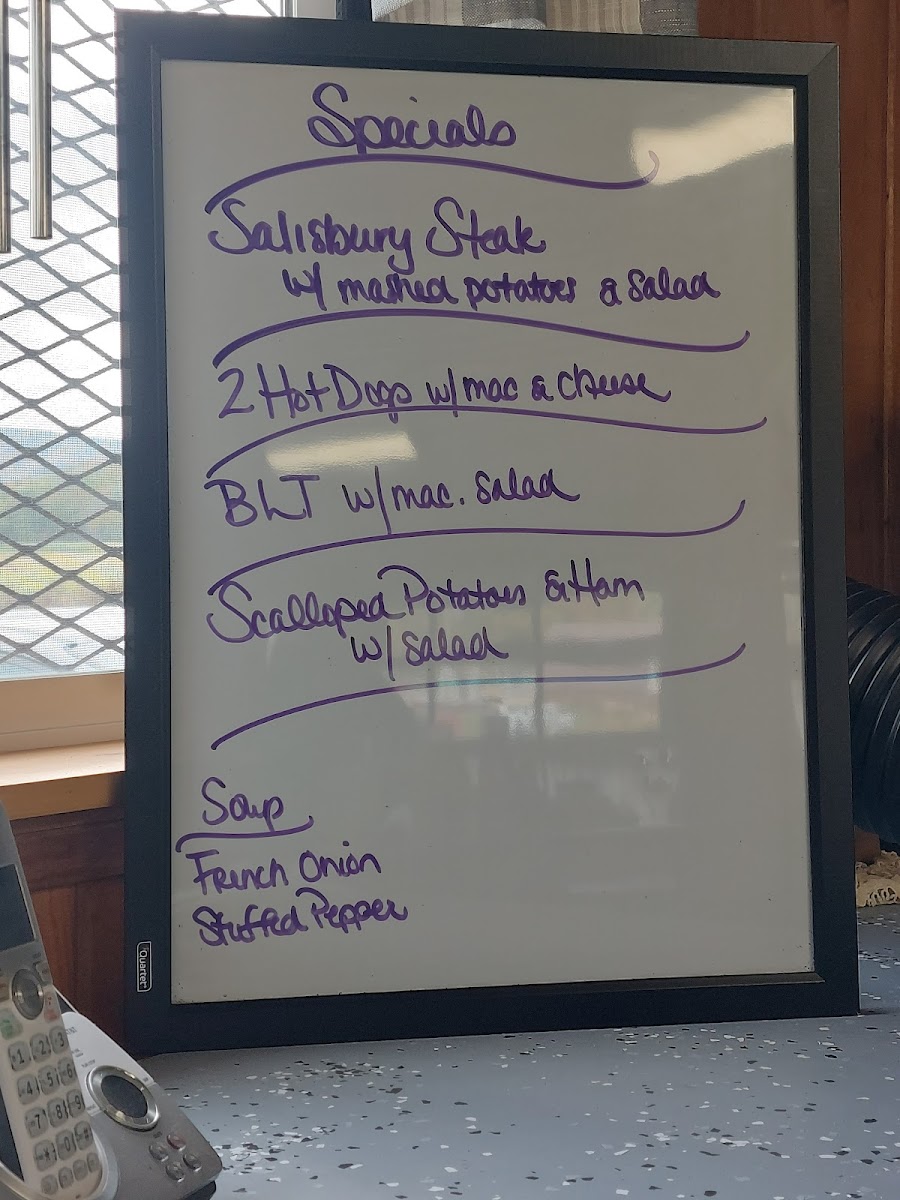 Specials
Salisbury Steak
w/ mashed potatoes & salad
2 Hot Dogs w/ mac & cheese
BLT w/ mac. salad
Scalloped Potatoes & Ham
w/ salad
Soup
French Onion
Stuffed Pepper
Quartet
1 2 3
4 5 6
7 8 9
* 0 #